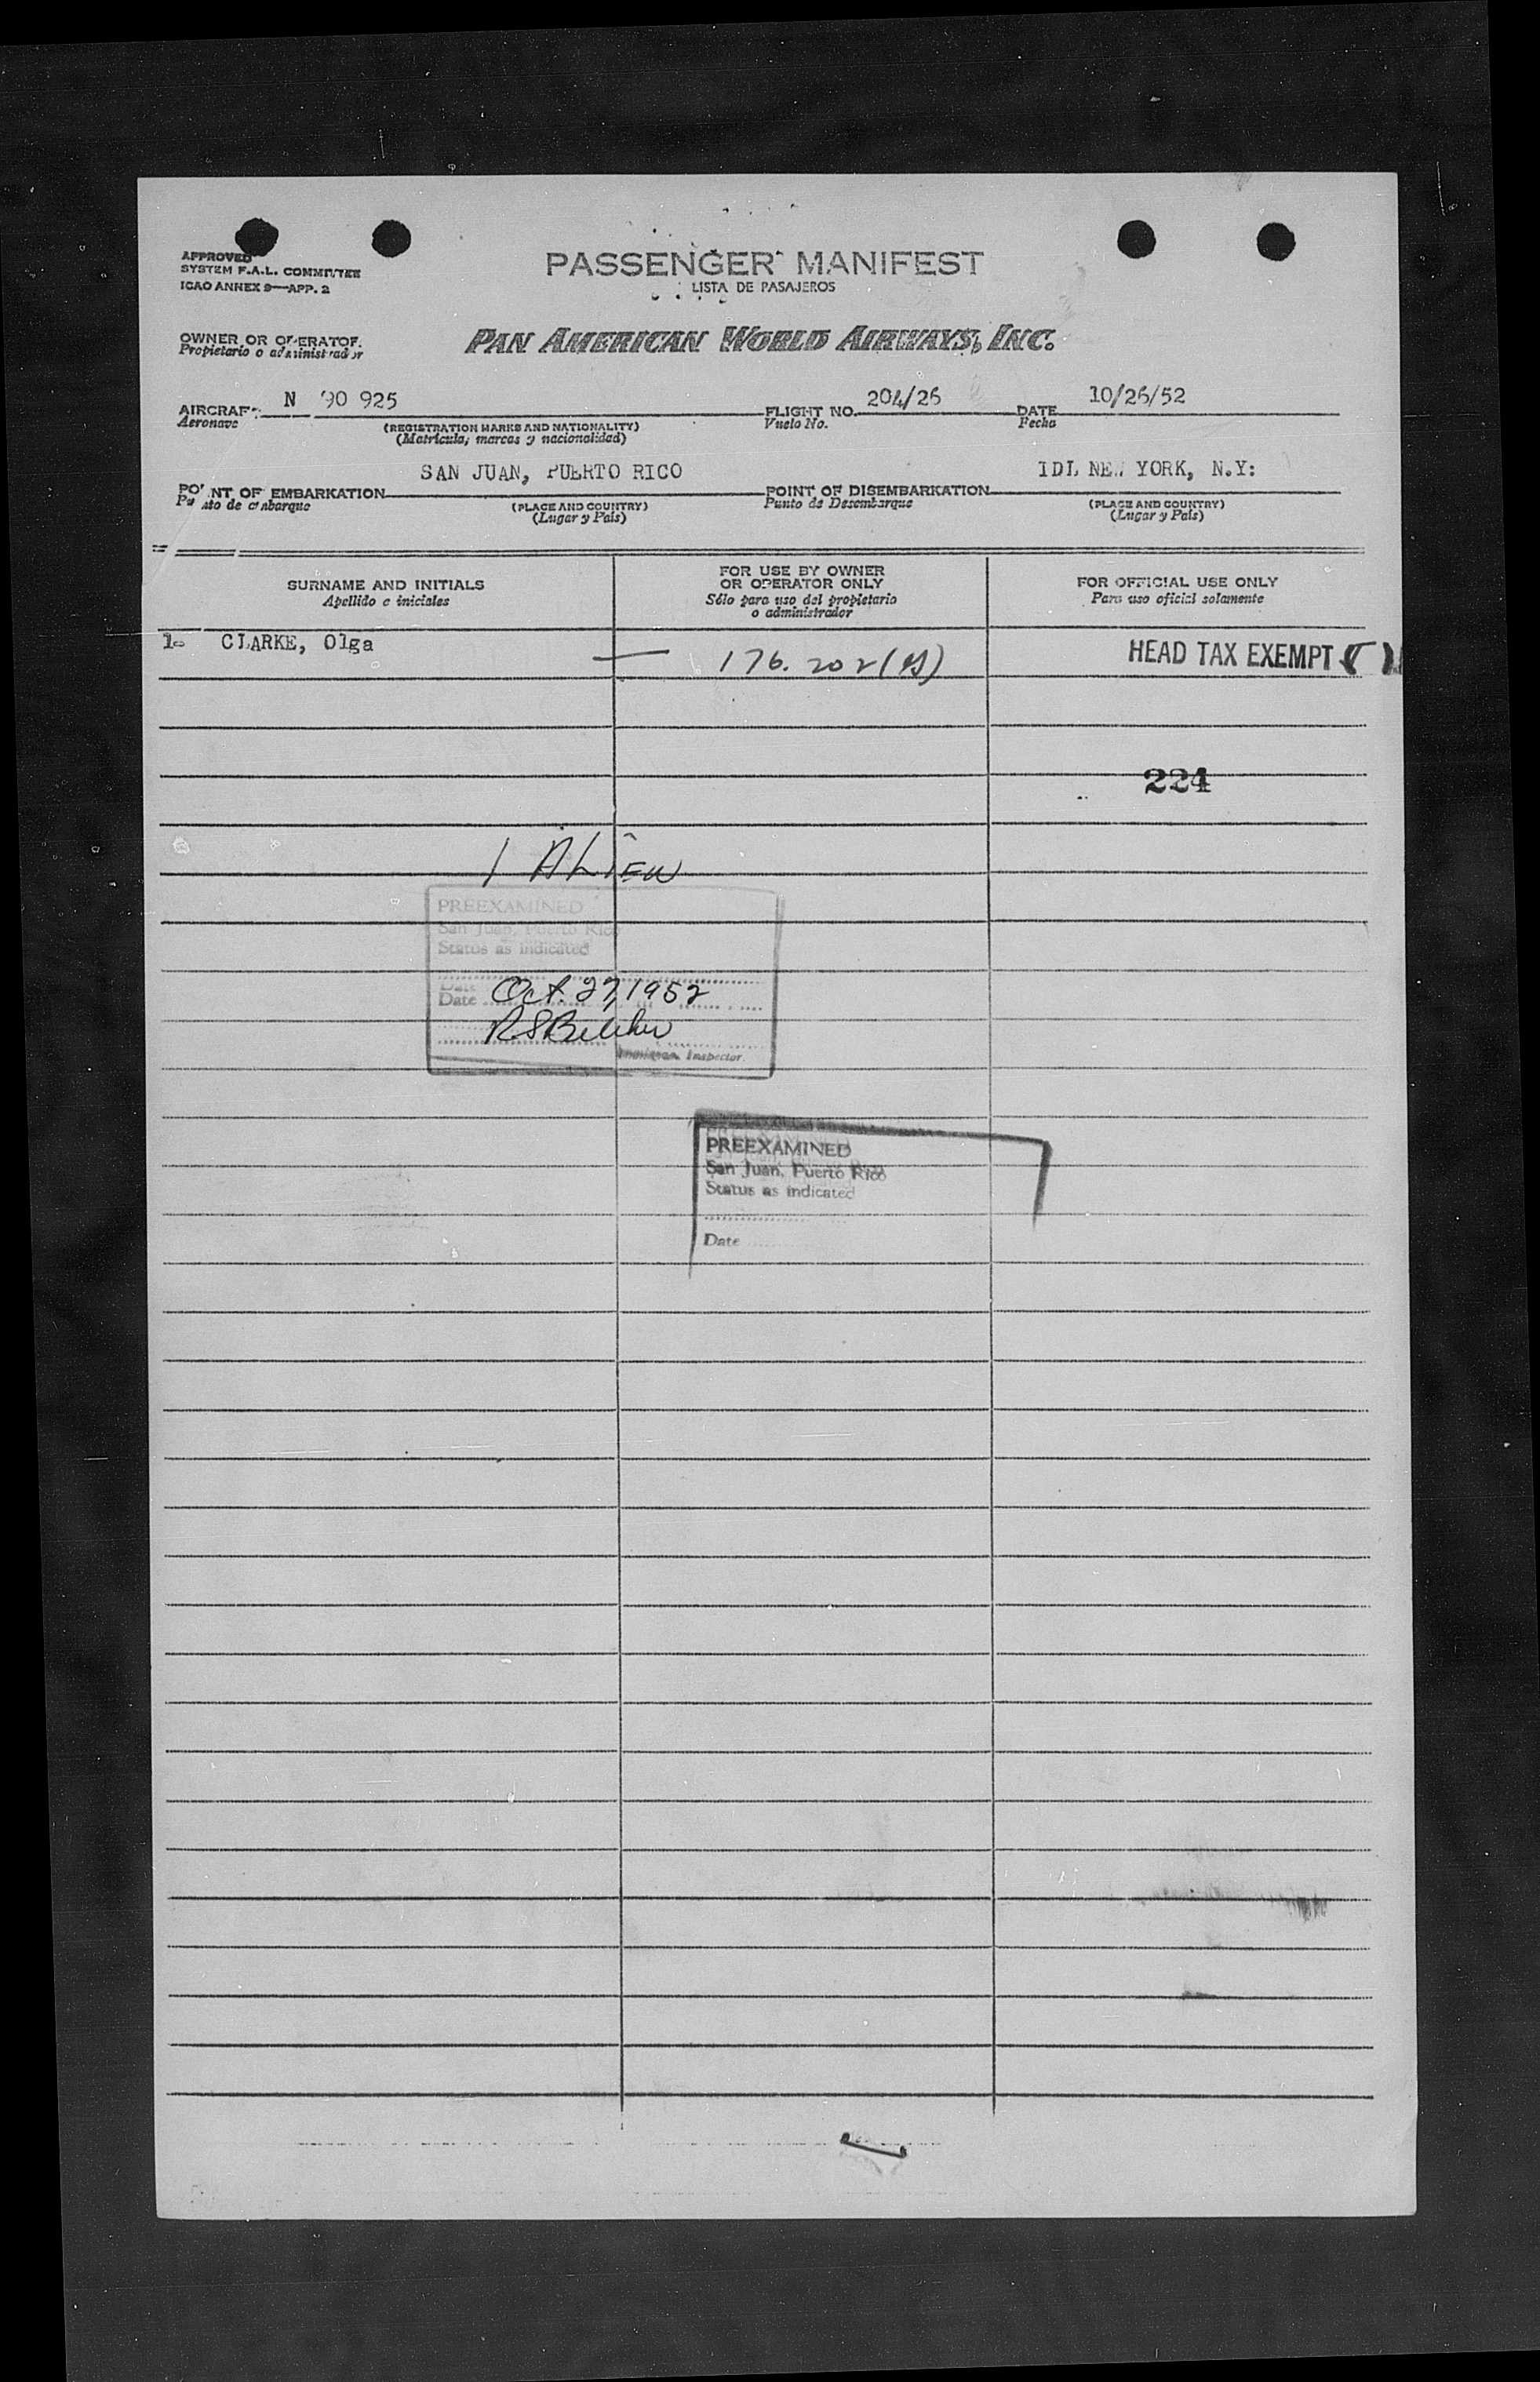 APPROVED
SYSTEM F.A.L. COMMITTEE
ICAO ANNEX 9—APP. 2
PASSENGER MANIFEST
LISTA DE PASAJEROS
OWNER OR OPERATOR
Propietario o administrador
PAN AMERICAN WORLD AIRWAYS, INC.
AIRCRAFT N 90 925 FLIGHT NO. 204/26 DATE 10/26/52
Aeronave (REGISTRATION MARKS AND NATIONALITY) Vuelo No. Fecha
(Matrícula, marcas y nacionalidad)
POINT OF EMBARKATION SAN JUAN, PUERTO RICO POINT OF DISEMBARKATION IDL NEW YORK, N.Y:
Punto de embarque (PLACE AND COUNTRY) Punto de Desembarque (PLACE AND COUNTRY)
(Lugar y País) (Lugar y País)
SURNAME AND INITIALS FOR USE BY OWNER OR OPERATOR ONLY FOR OFFICIAL USE ONLY
Apellido e iniciales Sólo para uso del propietario o administrador Para uso oficial solamente
1. CLARKE, Olga — 176.202(A) HEAD TAX EXEMPT ( )
224
1 ALIEN
PREEXAMINED
San Juan, Puerto Rico
Status as indicated
Date
Date Oct. 27, 1952
Inspector
PREEXAMINED
San Juan, Puerto Rico
Status as indicated
Date